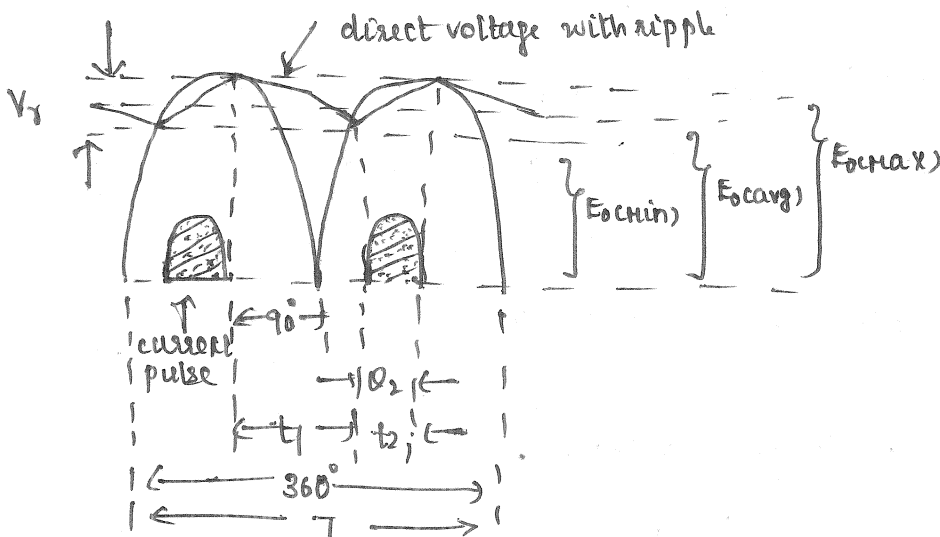 direct voltage with ripple
Vr
Eo(Min)
Eo(avg)
Eo(Max)
90°
current
pulse
θ2
t1
t2
360°
T